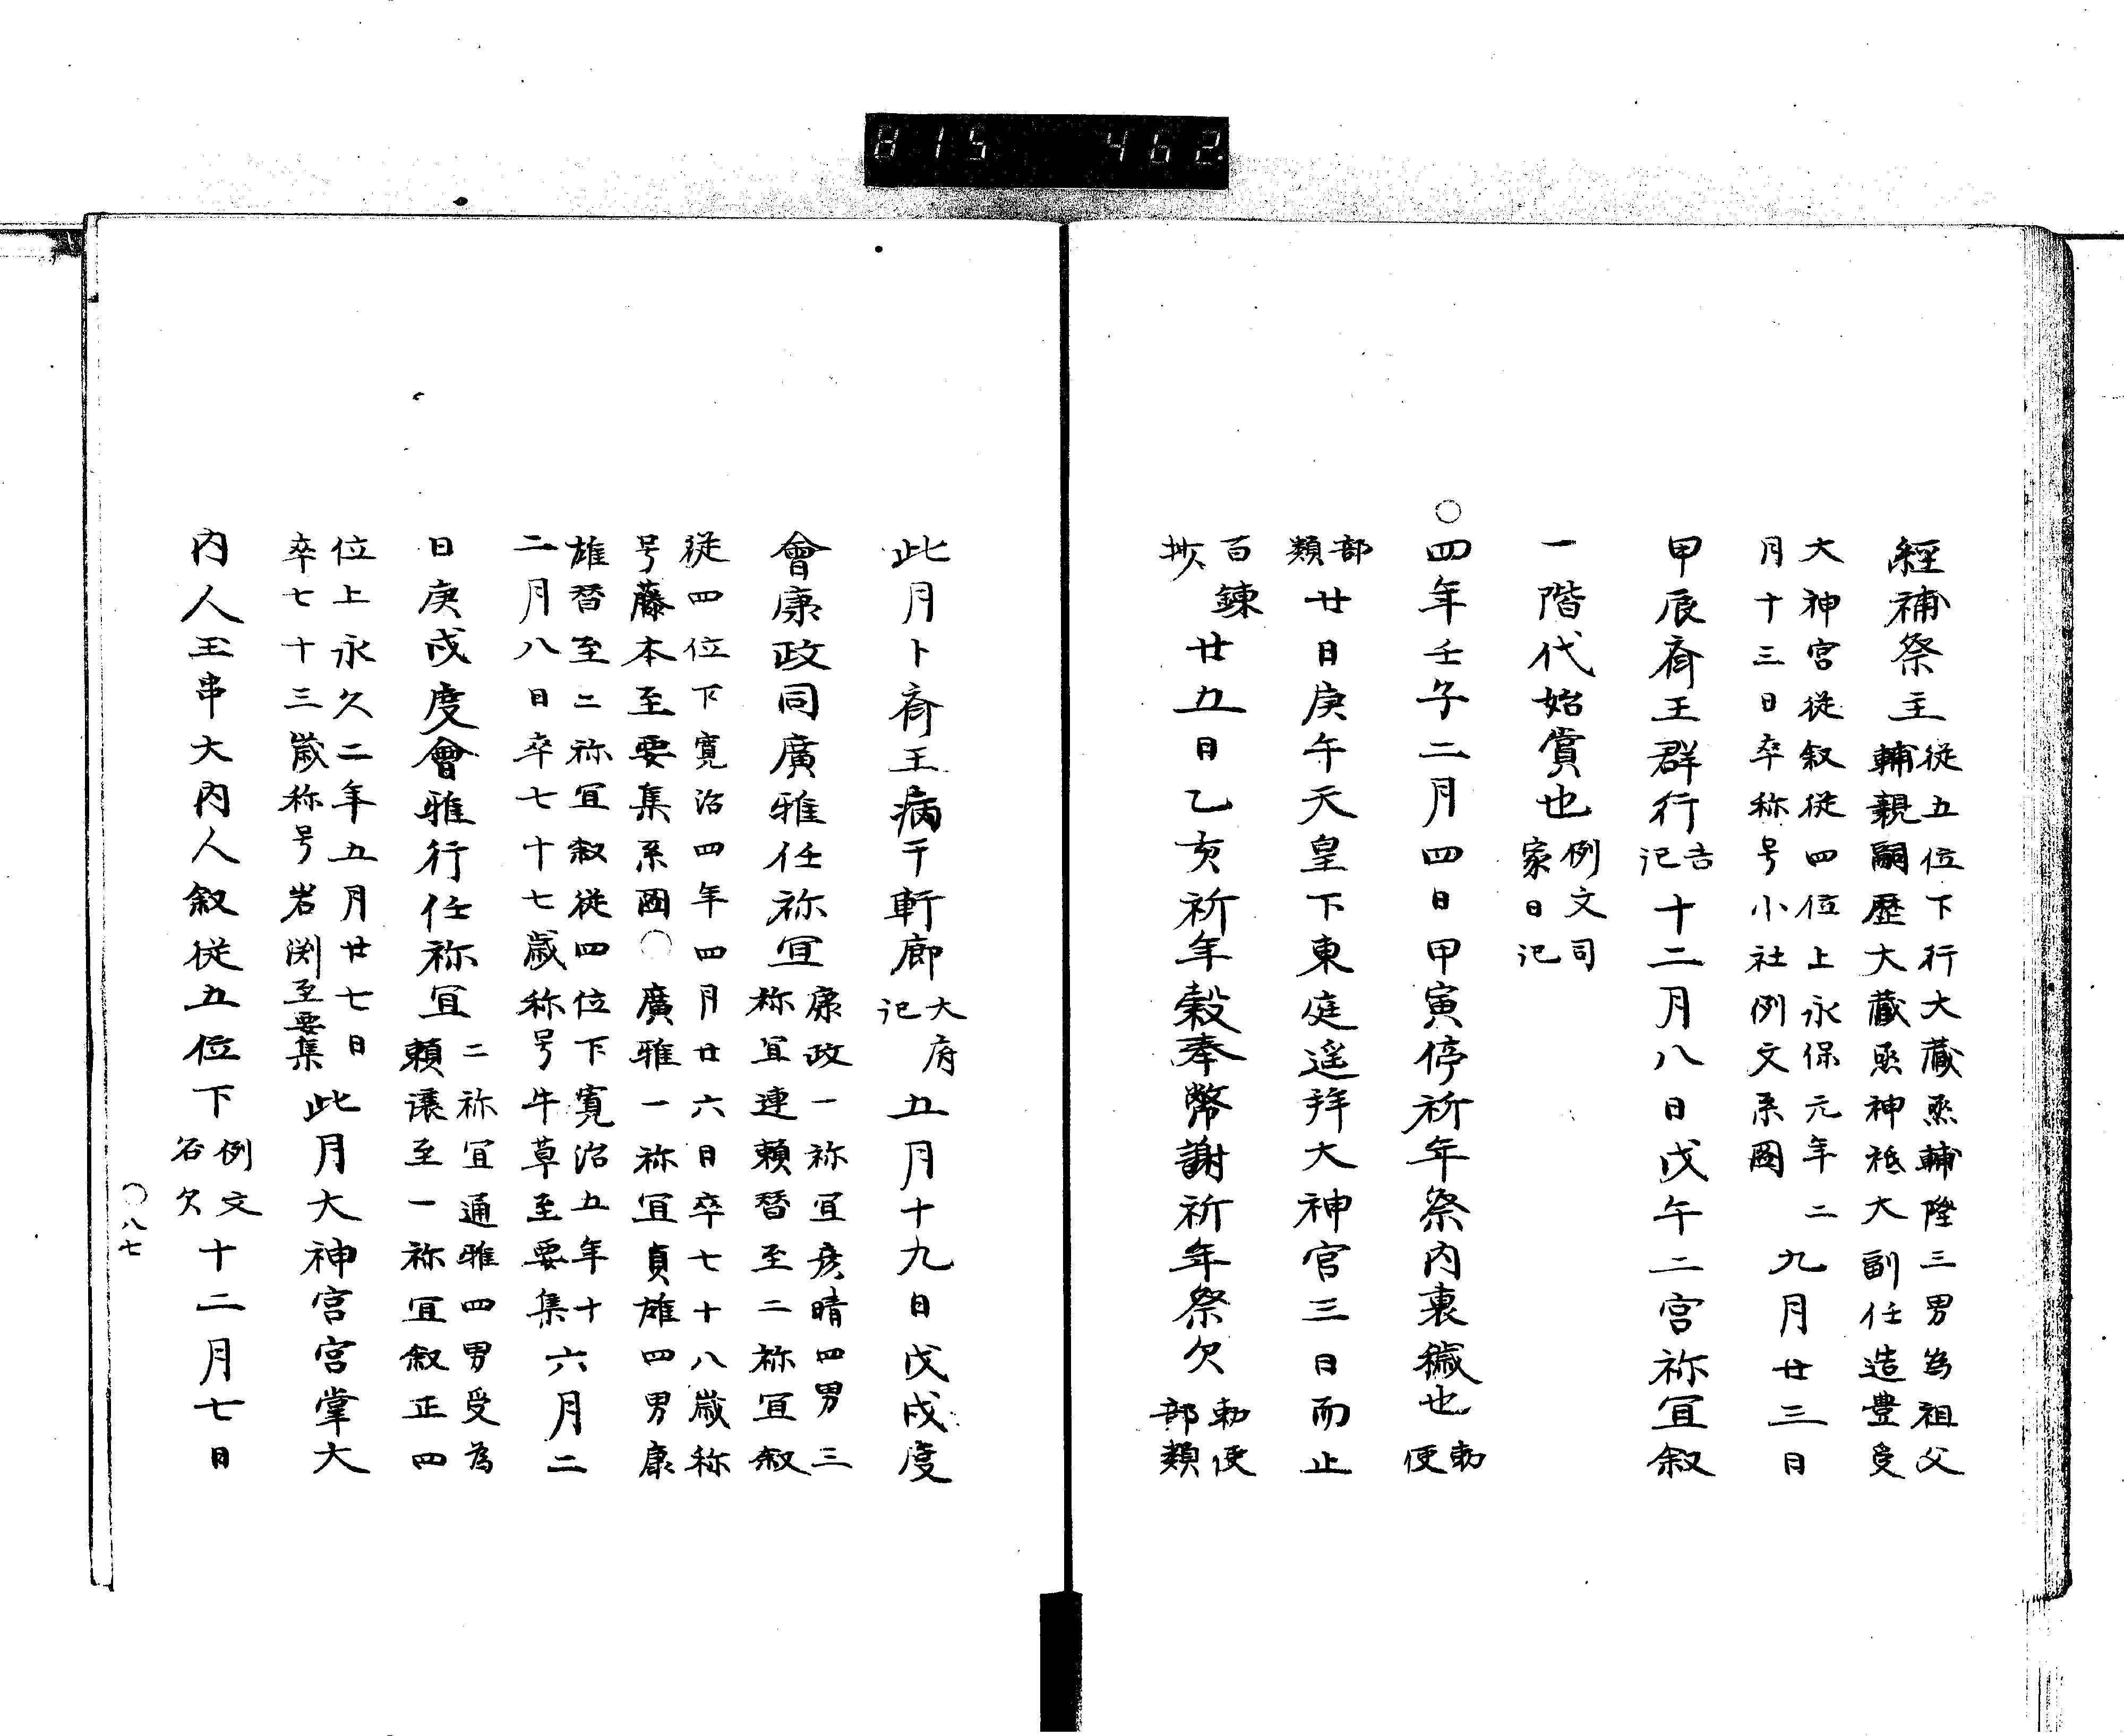 815 462.
經補祭主從五位下行大蔵烝輔隆三男為祖父輔親嗣歴大蔵烝神祇大副任造豊受
大神宮従叙従四位上永保元年二月十三日卒称号小社例文系圖九月廿三日
甲辰斎王群行吉記十二月八日戊午二宮祢宜叙
一階代始賞也例文司家日記
○四年壬子二月四日甲寅停祈年祭内裏穢也勅使
部類廿日庚午天皇下東庭遥拜大神宮三日而止
百錬抄廿五日乙亥祈年穀奉幣謝祈年祭欠勅使部類
此月卜斎王病于軒廊大府記五月十九日戊戌度
會康政同廣雅任祢宜康政一祢宜彦晴四男三祢宜連頼替至二祢宜叙
従四位下寛治四年四月廿六日卒七十八歳称号藤本至要集系圖○廣雅一祢宜貞雄四男康
雄替至二祢宜叙従四位下寛治五年十二月八日卒七十七歳称号牛草至要集六月二
日庚戌度會雅行任祢宜二祢宜通雅四男受為頼讓至一祢宜叙正四
位上永久二年五月廿七日卒七十三歳称号岩渕至要集此月大神宮宮掌大
内人玉串大内人叙従五位下例文名欠十二月七日
○八七